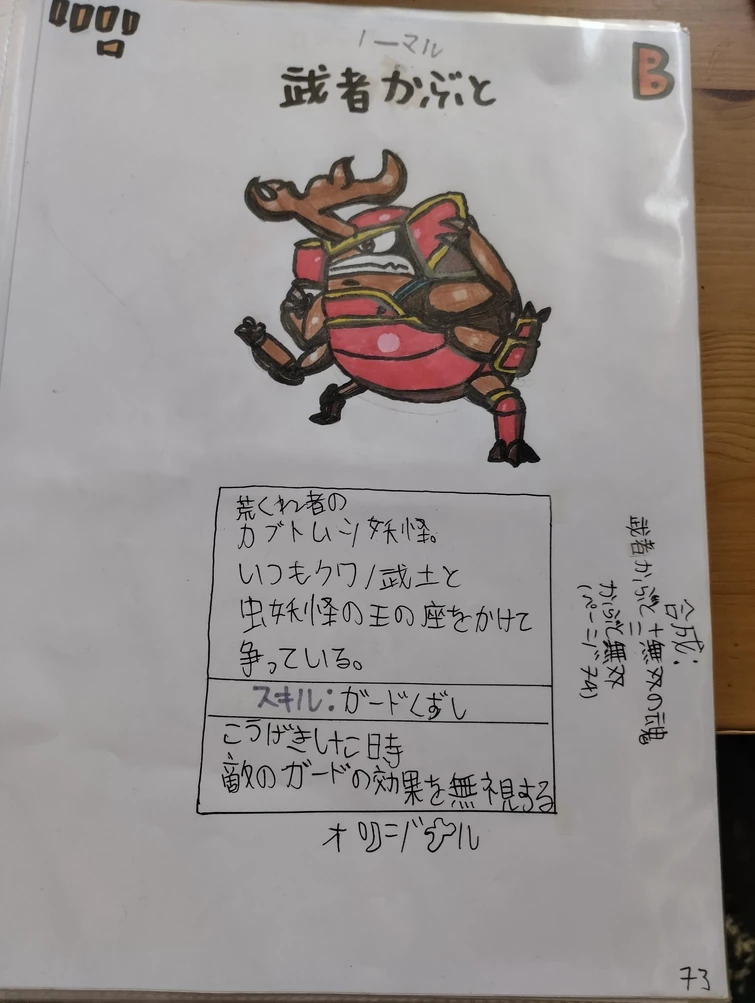 ノーマル
武者かぶと
B
荒くれ者の
カブトムシ妖怪。
いつもクワノ武士と
虫妖怪の王の座をかけて
争っている。
スキル:ガードくずし
こうげきした時
敵のガードの効果を無視する
オリジナル
合成:
武者かぶと+無双の魂
=
かぶと無双
(ページ74)
73